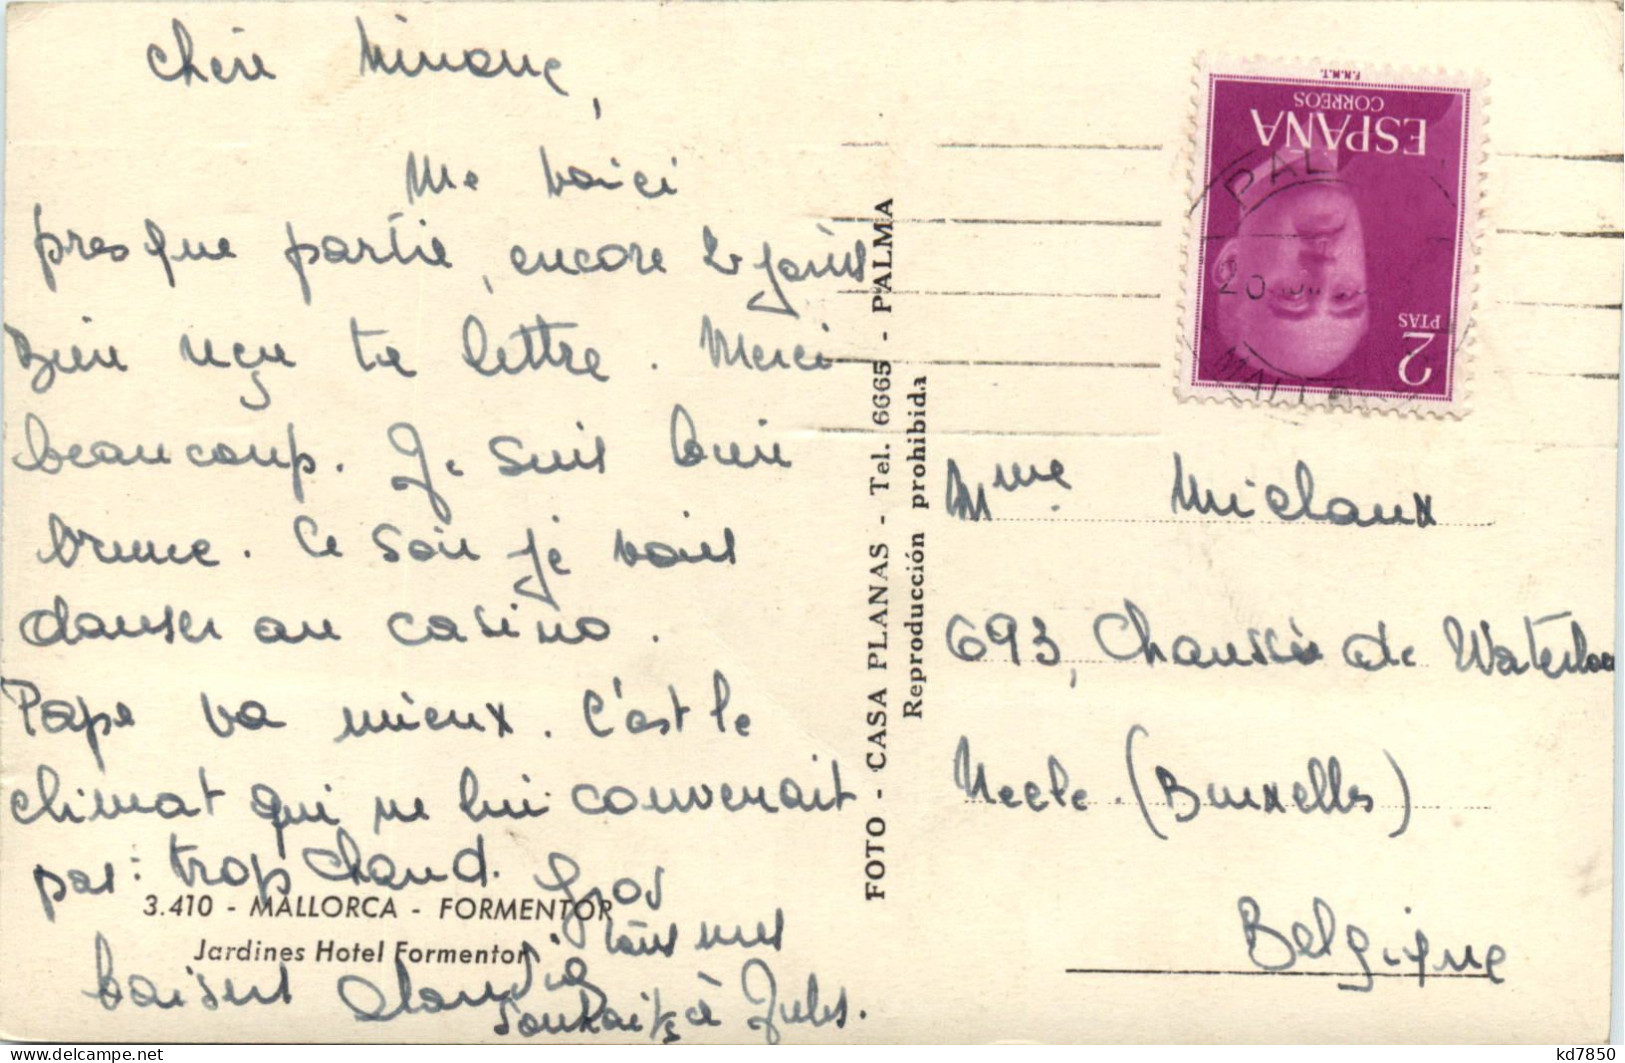 Chère Minone,
Me voici
presque partie, encore 2 jours
Bien reçu ta lettre. Merci
beaucoup. Je suis bien
brune. Ce soir je vais
danser au casino.
Papa va mieux. C'est le
climat qui ne lui convenait
pas: trop chaud. Gros
baisers Claudia
Tous mes
souhaits à Jules.
3.410 - MALLORCA - FORMENTOR
Jardines Hotel Formentor
FOTO - CASA PLANAS - Tel. 6665 - PALMA
Reproducción prohibida
F.N.M.T.
CORREOS
ESPAÑA
2
PTAS
PAL
20
MALLOR
Mme. Miclaux
693, Chaussée de Waterloo
Uccle. (Bruxelles)
Belgique
kd7850